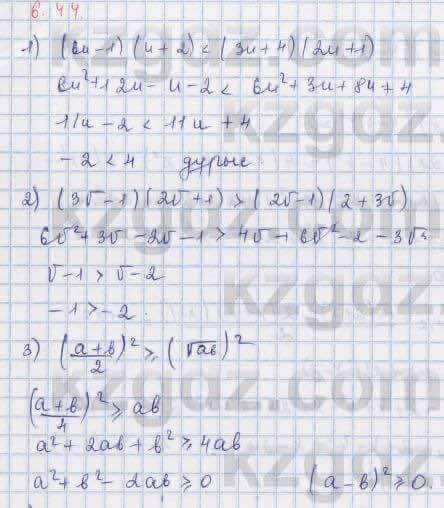 6.44.
1) (6u-1)(u+2) < (3u+4)(2u+1)
6u²+12u-u-2 < 6u²+3u+8u+4
11u-2 < 11u+4
-2 < 4 дурыс
2) (3v-1)(2v+1) > (2v-1)(2+3v)
6v²+3v-2v-1 > 4v+6v²-2-3v
v-1 > v-2
-1 > -2.
3) ((a+b)/2)² ≥ (√ab)²
(a+b)²/4 ≥ ab
a²+2ab+b² ≥ 4ab
a²+b²-2ab ≥ 0 (a-b)² ≥ 0.
kzgdz.com